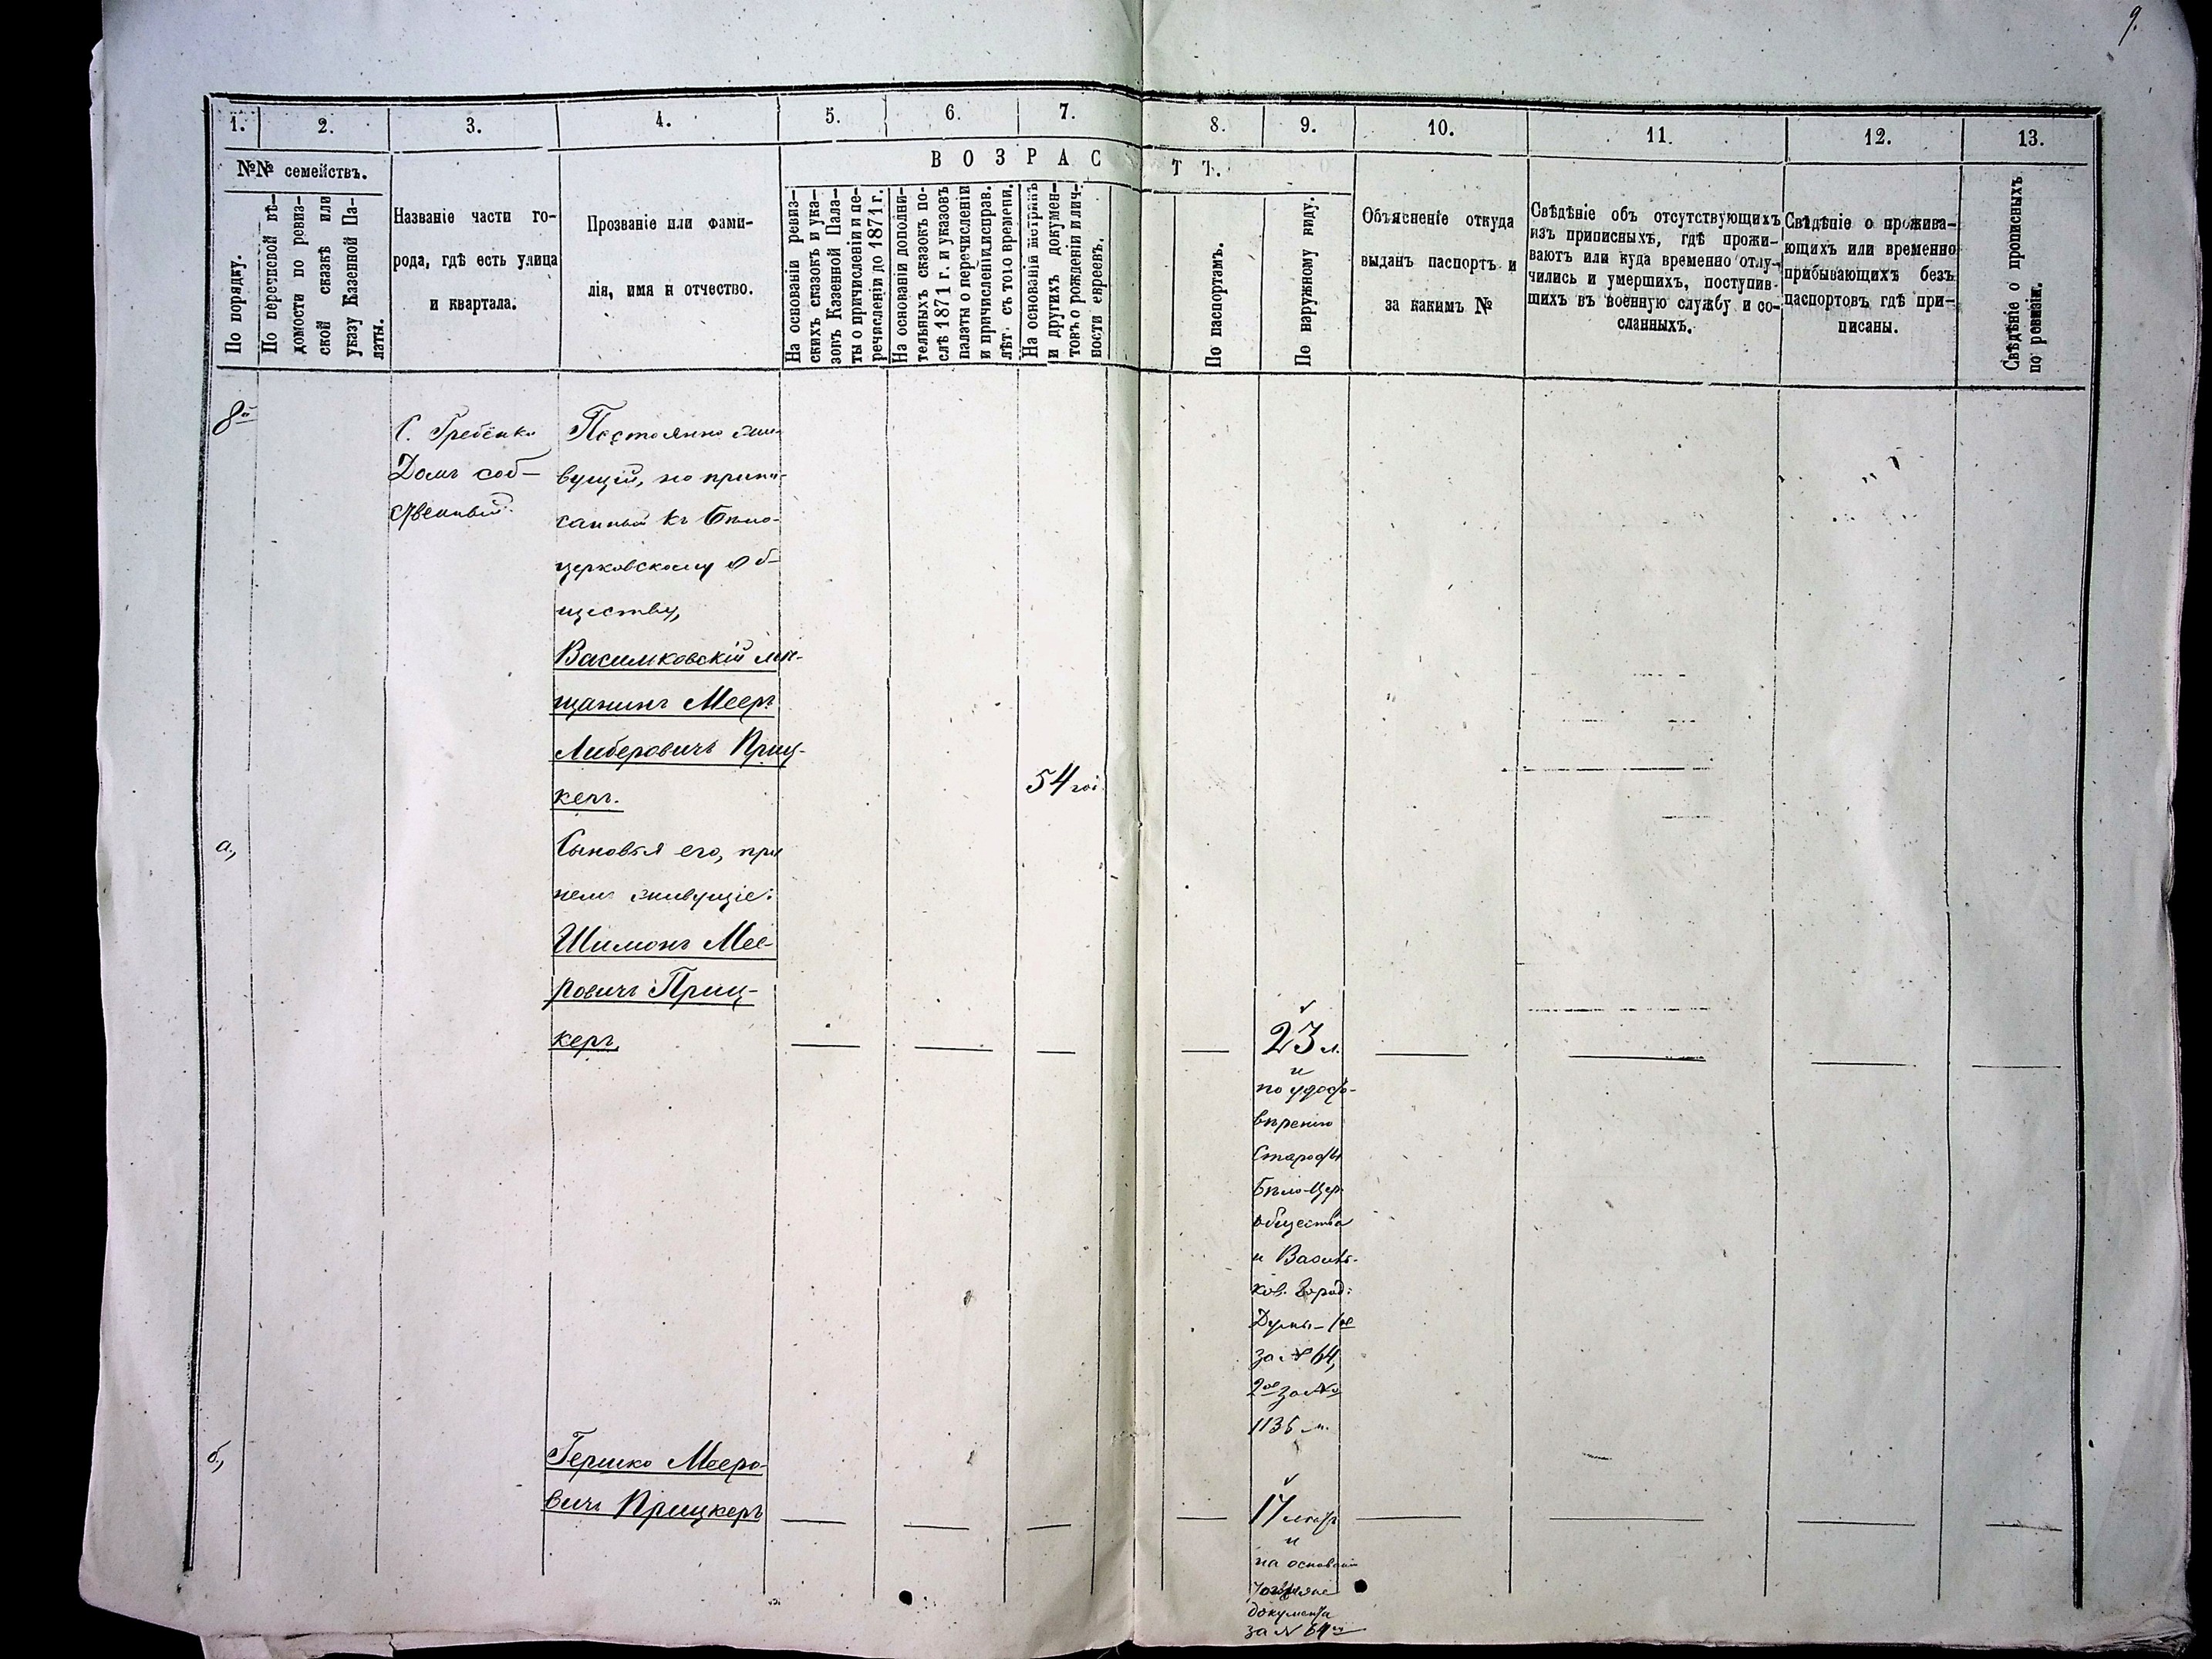 9.
1. 2. 3. 4. 5. 6. 7. 8. 9. 10. 11. 12. 13.
№№ семействъ.
ВОЗРАСТЪ.
По порядку.
По перечневой вѣ-
домости по ревиз-
ской сказкѣ или
указу Казенной Па-
латы.
Названіе части го-
рода, гдѣ есть улица
и квартала.
Прозваніе или фами-
лія, имя и отчество.
На основаніи ревиз-
скихъ сказокъ и ука-
зовъ Казенной Пала-
ты о причисленіи и пе-
речисленіи до 1871 г.
На основаніи дополни-
тельныхъ сказокъ по-
слѣ 1871 г. и указовъ
палаты о перечисленіи
и причисленіи, исправ.
лѣт. съ того времени.
На основаніи метрикъ
и другихъ докумен-
товъ о рожденіи и лич-
ности евреевъ.
По паспортамъ.
По наружному виду.
Объясненіе откуда
выданъ паспортъ и
за какимъ №
Свѣдѣніе объ отсутствующихъ
изъ приписныхъ, гдѣ прожи-
ваютъ или куда временно отлу-
чились и умершихъ, поступив-
шихъ въ военную службу и со-
сланныхъ.
Свѣдѣніе о прожива-
ющихъ или временно
прибывающихъ безъ
паспортовъ гдѣ при-
писаны.
Свѣдѣніе о прописныхъ
по ревизіи.
8й
С. Гребёнки
Домъ соб-
ственный.
Постоянно жи-
вущій, но припи-
санный къ Бѣло-
церковскому Об-
ществу,
Васильковскій мѣ-
щанинъ Мееръ
Либеровичъ Приц-
керъ.
54
а,
Сыновья его, при
немъ живущіе:
Шимонъ Мее-
ровичъ Приц-
керъ,
23 л.
и
по удосто-
вѣренію
Старосты
Бѣло-Цер.
общества
и Василь-
ков. Город:
Думы - 1ое
за № 64,
2ое за №
1135 м.
б,
Гершко Мееро-
вичъ Прицкеръ
17 лѣтъ
и
на основаніи
документа
за № 64